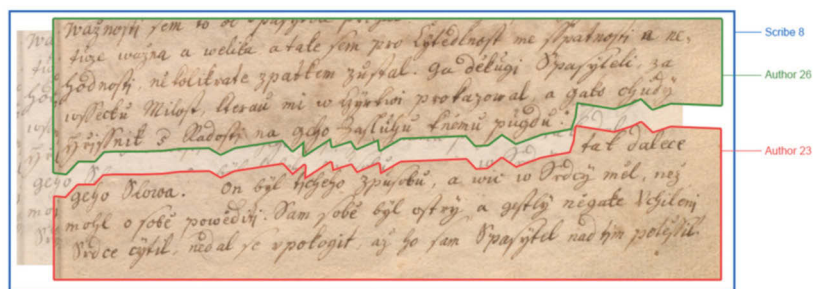 Wážnosti sem to od Spasytele
tuze wažna a welika, a take sem pro Cytedlnost me sspatnosti a ne=
hodnosti, několikrate zpatkem zustal. Ga děkugi Spasyteli, za
wssecku Milost, kterau mi w Cyrkwi prokazowal, a gako chudy
hřissnik s Radosti na geho Zasluhu k němu pugdu.
tak dalece
geho Slowa. On byl ticheho Zpusobu, a wic w Srdcy měl, než
mohl o sobě powěditi. Sam sobě byl ostry, a gestly něgake Vchileni
Srdce cytil, nedal se vpokogit, až ho sam Spasytel nad tim potěssil.
Scribe 8
Author 26
Author 23